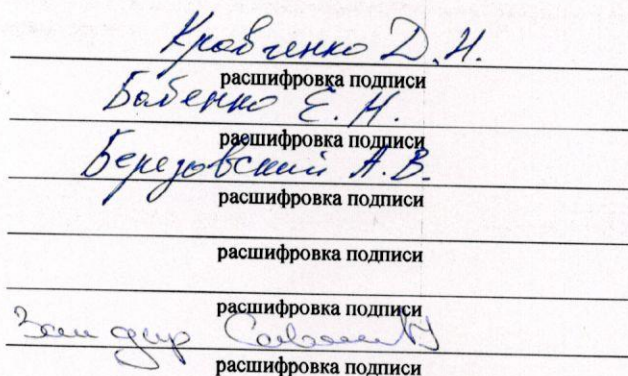 Кравченко Д.Н.
расшифровка подписи
Бабенко Е.Н.
расшифровка подписи
Березовский А.В.
расшифровка подписи
расшифровка подписи
расшифровка подписи
Зам дир
расшифровка подписи